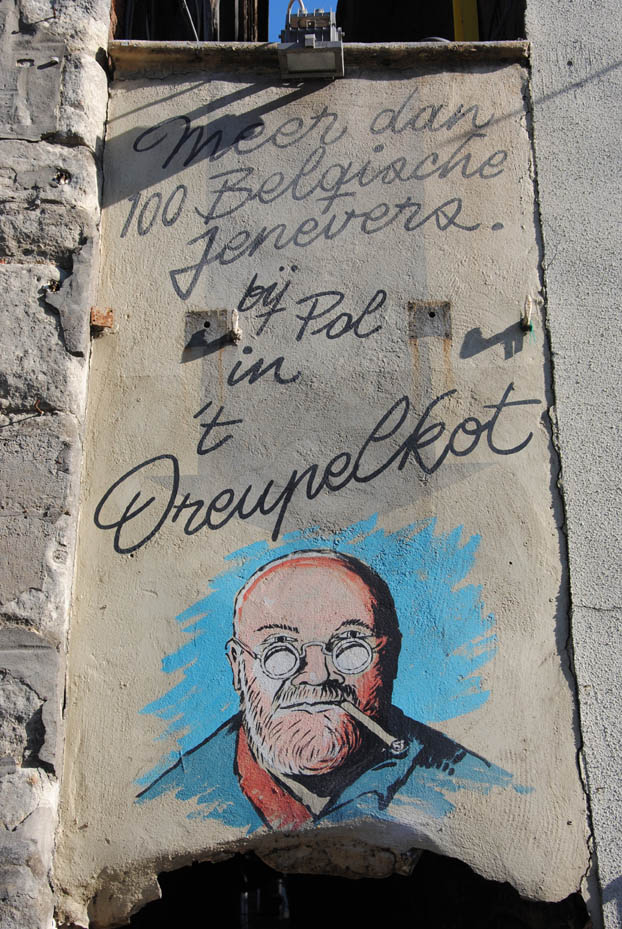 Meer dan
100 Belgische
Jenevers.
bij Pol
in
't
Dreupelkot